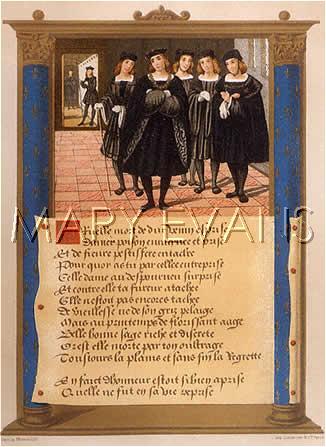 Rueille mort de dur venin esprise
Damer poison enuieuse et prise
Et de fieure pestifere entachee
Pour quoy as tu par celle entreprise
Celle dame au despourueu surprise
Et contre elle ta fureur atache
Elle nestoit pas encores tache
De vieillesse ne de son gris pelaige
Mais au printemps de florissant aage
Elle bonne sage riche et discrete
Or est elle morte par ton oultrage
Tousiours la plains et sans fin la regrette
En faict dhonneur estoit si bien aprise
Quelle ne fut en sa vie reprise
MARY EVANS